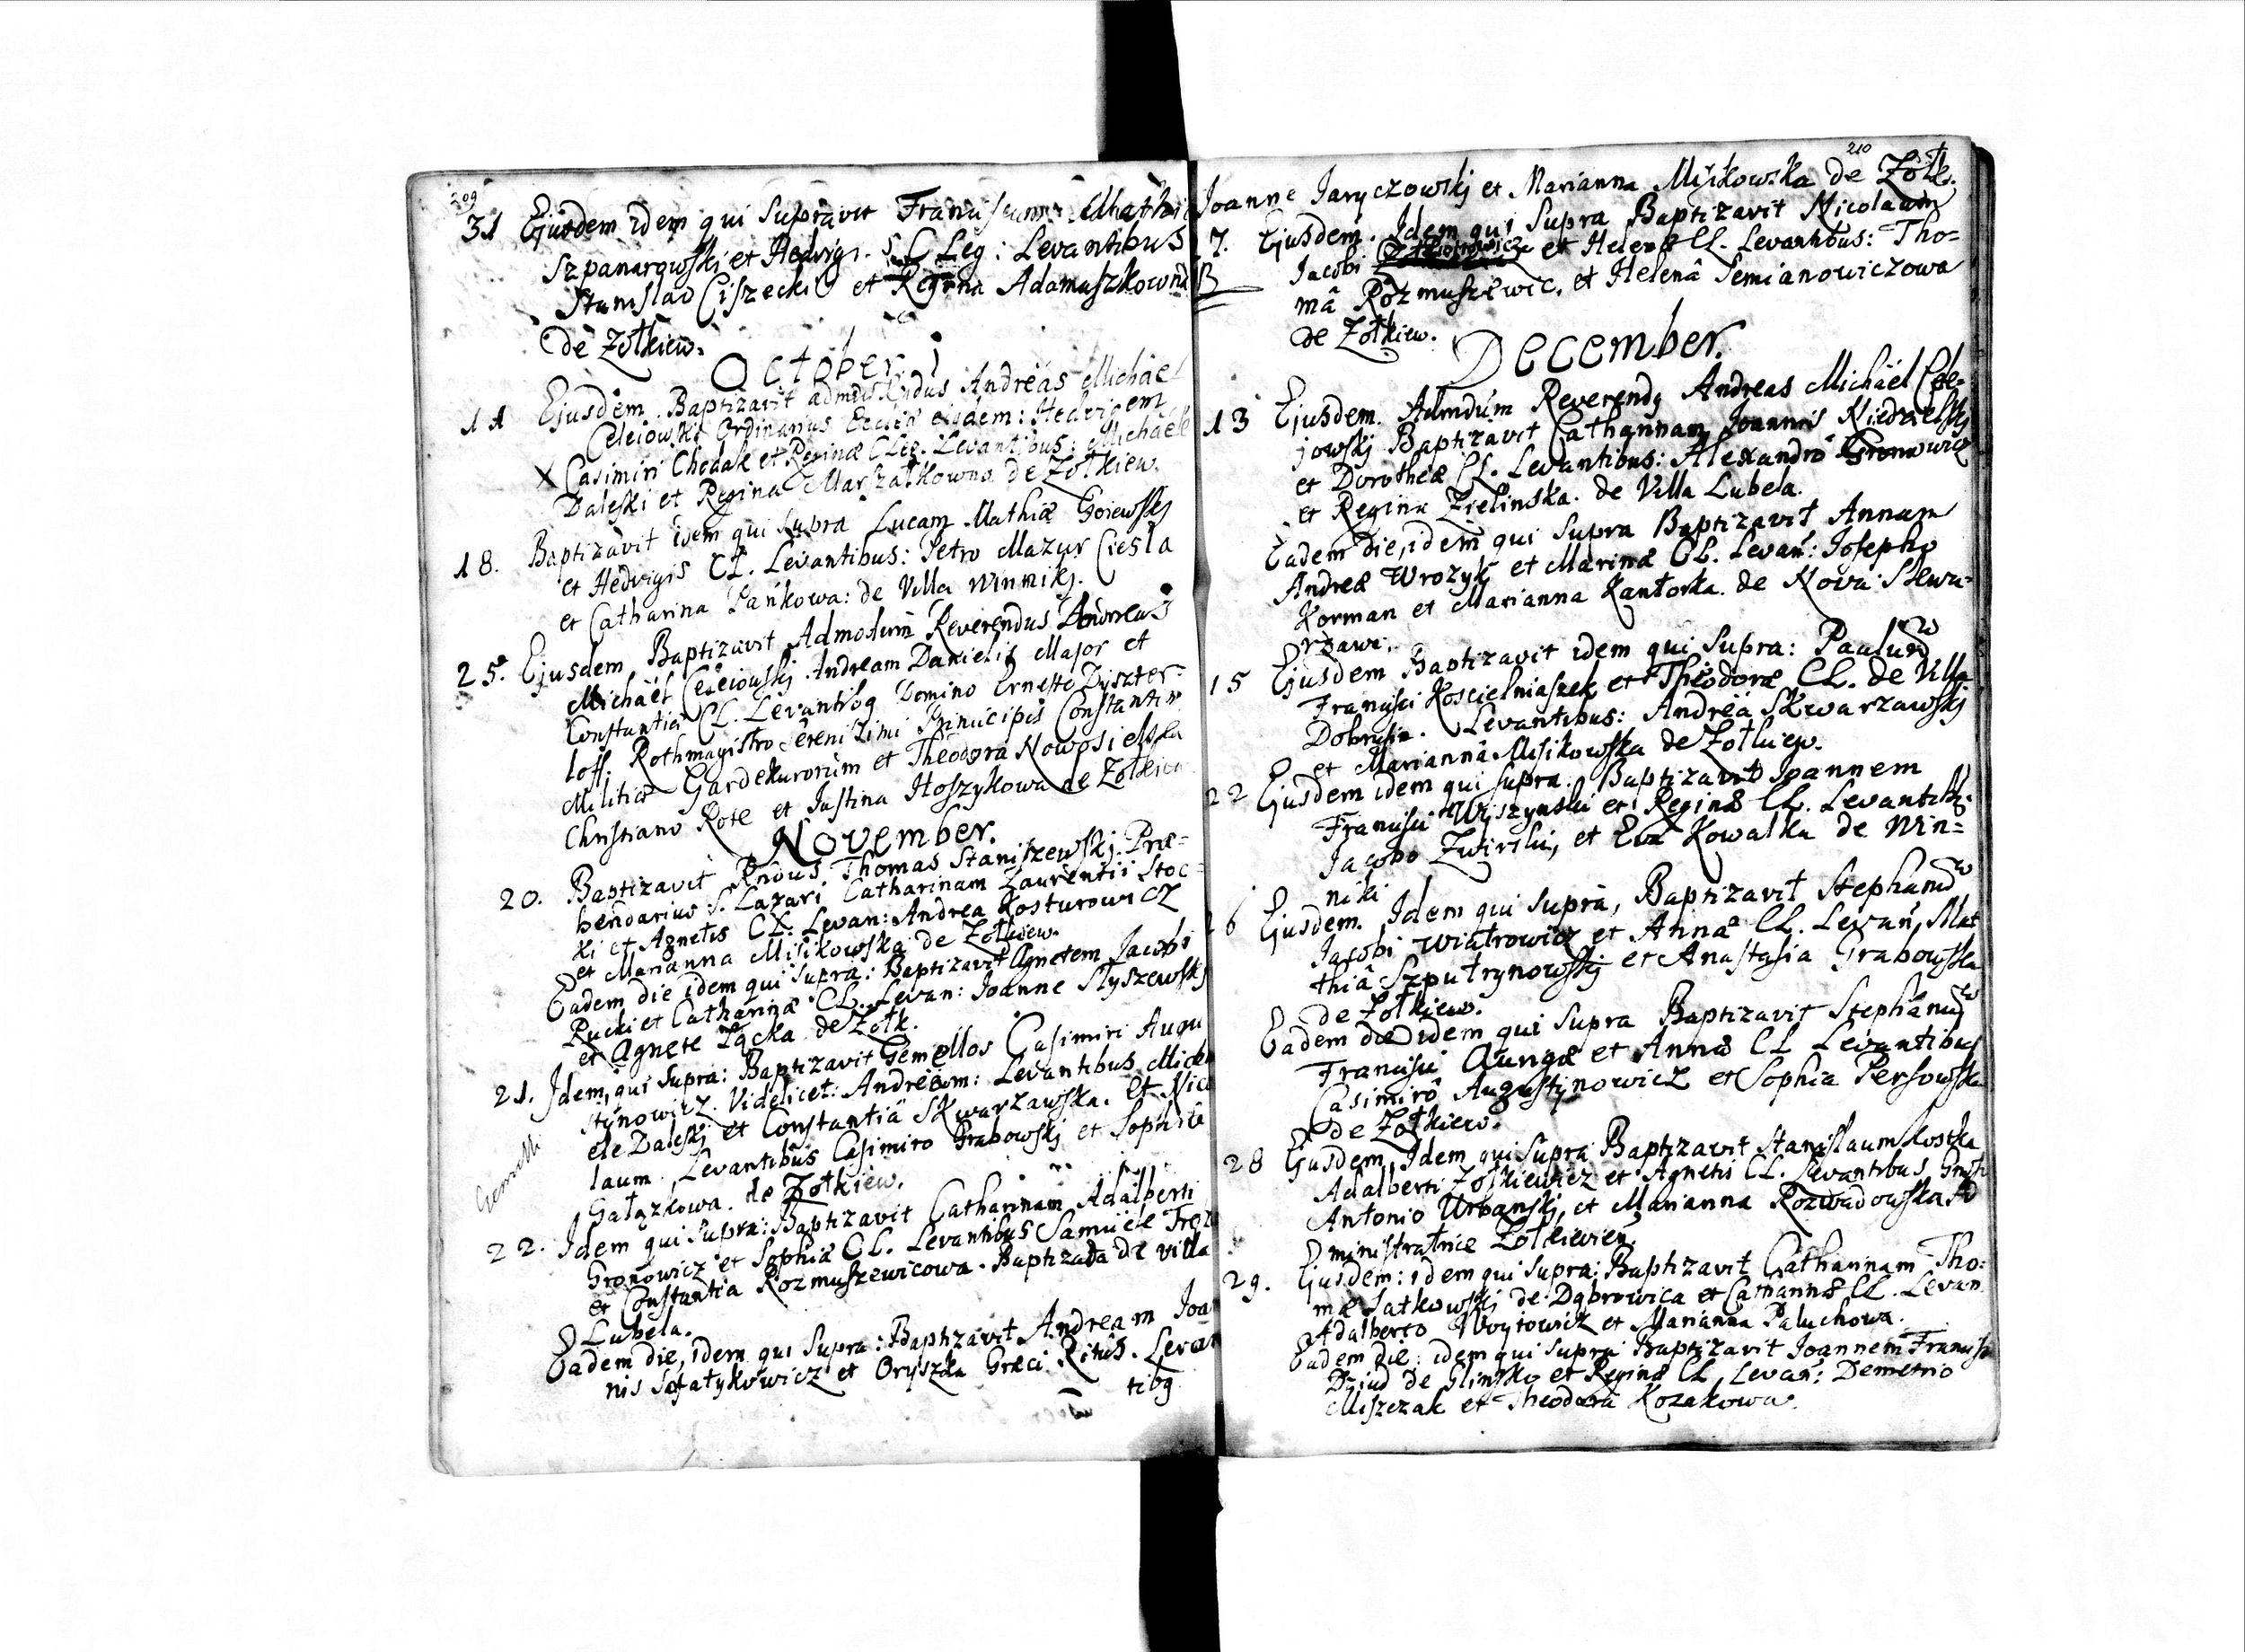 209
31 Ejusdem idem qui Supravit Franciscum Mathiæ
Szpanarowskj et Hedvigi. C Leg: Levantibus
Stanislao Ciszecki et Regina Adamaszkowna
de Zołkiew.
October
11 Ejusdem. Baptizavit admdũ Rndus Andreas Michael
Celeiowskj Ordinarius Eccliæ ejusdem: Hedvigem
X Casimiri Chodak et Reginæ CLeg. Levantibus: Michaele
Daleski et Regina Marszałkowna de Zołkiew.
18. Baptizavit idem qui Supra Lucam Mathiæ Goiewskj
et Hedvigis CL. Levantibus: Petro Mazur Ciesla
et Catharina Pańkowa: de Villa Winnikj.
25. Ejusdem Baptizavit Admodum Reverendus Andreas
Michaël Celeiowskj Andream Danielis Major et
Constantiæ CL. Levantibq Domino Ernesto Dyszter-
loff. Rothmagistro Serenissimi Principis Constantin
Militiæ Gardekurorum et Theodora Nowosielska
Christiano Rote et Justina Hoszykowa de Zołkiew
November.
20. Baptizavit Rndus Thomas Staniszewskj Præ-
bendarius S. Lazari Catharinam Laurentii Stoc-
ki et Agnetis CL. Levan: Andrea Kosturowicz
et Marianna Misikowska de Zołkiew.
Eadem die idem qui Supra: Baptizavit Agnetem Jacobi
Rucki et Catharinæ CL. Levan: Joanne Słyszewskj
et Agnete Łącka de Zołk.
21. Idem, qui Supra: Baptizavit Gemellos Casimiri Augu
stynowicz. Videlicet: Andream: Levantibus Mich
ele Daleskj et Constantiâ Skwarzawska. Et Nico
laum, Levantibus Casimiro Grabowskj et Sophiâ
Gałązkowa. de Zołkiew.
Gemelli
22. Idem qui Supra: Baptizavit Catharinam Adalberti
Gronowicz et Sophiæ CL. Levantibus Samuele
et Constantia Rozmuszewicowa. Baptizata de villa
Lubela.
Eadem die, idem qui Supra: Baptizavit Andream Joa
nis et Oryszka Græci Ritûs. Levan
tibq
210
Joanne Jaryczowskj et Marianna Misikowska de Zołk.
17. Ejusdem. Idem qui Supra Baptizavit Nicolaum
Jacobi et Helenæ CL. Levantibus: Tho-
mâ Rozmuszewic. et Helenâ Semianowiczowa
de Zołkiew.
December.
13 Ejusdem. Admdum Reverendq Andreas Michaël Cele-
jowskj Baptizavit Catharinam Joannis Niedzielskj
et Dorotheæ CL. Levantibus: Alexandrô Gronowicz
et Regina Zielinska. de Villa Lubela.
Eadem Die, idem qui Supra Baptizavit Annam
Andreæ Wrozyk et Marinæ CL. Levan: Josepho
Korman et Marianna Kantorka. de Nova Skwa-
rzawa.
15 Ejusdem Baptizavit idem qui Supra: Paulum
Francisci Koscielniaszek et Theodoræ CL. de Villa
Dobrusin. Levantibus: Andreâ Skwarzawskj
et Mariannâ Misikowska de Zołkiew.
22 Ejusdem idem qui Supra. Baptizavit Joannem
Francisci Wyszynski et Reginæ CL. Levantibq.
Jacobo Zwirski, et Eva Kowalka de Win-
niki
26 Ejusdem. Idem qui Supra, Baptizavit Stephanum
Jacobi Wiatrowicz et Annæ CL. Levan, Mat
thiâ Szputrynowskj et Anastasia Grabowska
de Zołkiew.
Eadem die idem qui Supra Baptizavit Stephanum
Francisci Aungæ et Annæ CL Levantibus
Casimirô Augustynowicz et Sophia Persowska
de Zołkiew.
28 Ejusdem, Idem qui Supra Baptizavit Stanislaum Kostka
Adalberti Zołkiewicz et Agnetis CL. Levantibus
Antonio Urbanskj, et Marianna Rozwadowska Ad
ministratrice Zołkiewien.
29. Ejusdem: idem qui Supra: Baptizavit Catharinam Tho:
mæ Jatkowskj de Dąbrowica et Catharinæ CL. Levan
Adalberto Woytowicz et Marianna Paluchowa.
Eadem Die: idem qui Supra Baptizavit Joannem Francisci
de Glinsko et Reginæ CL, Levan: Demetrio
Miszczak et Theodora Kozakowa.